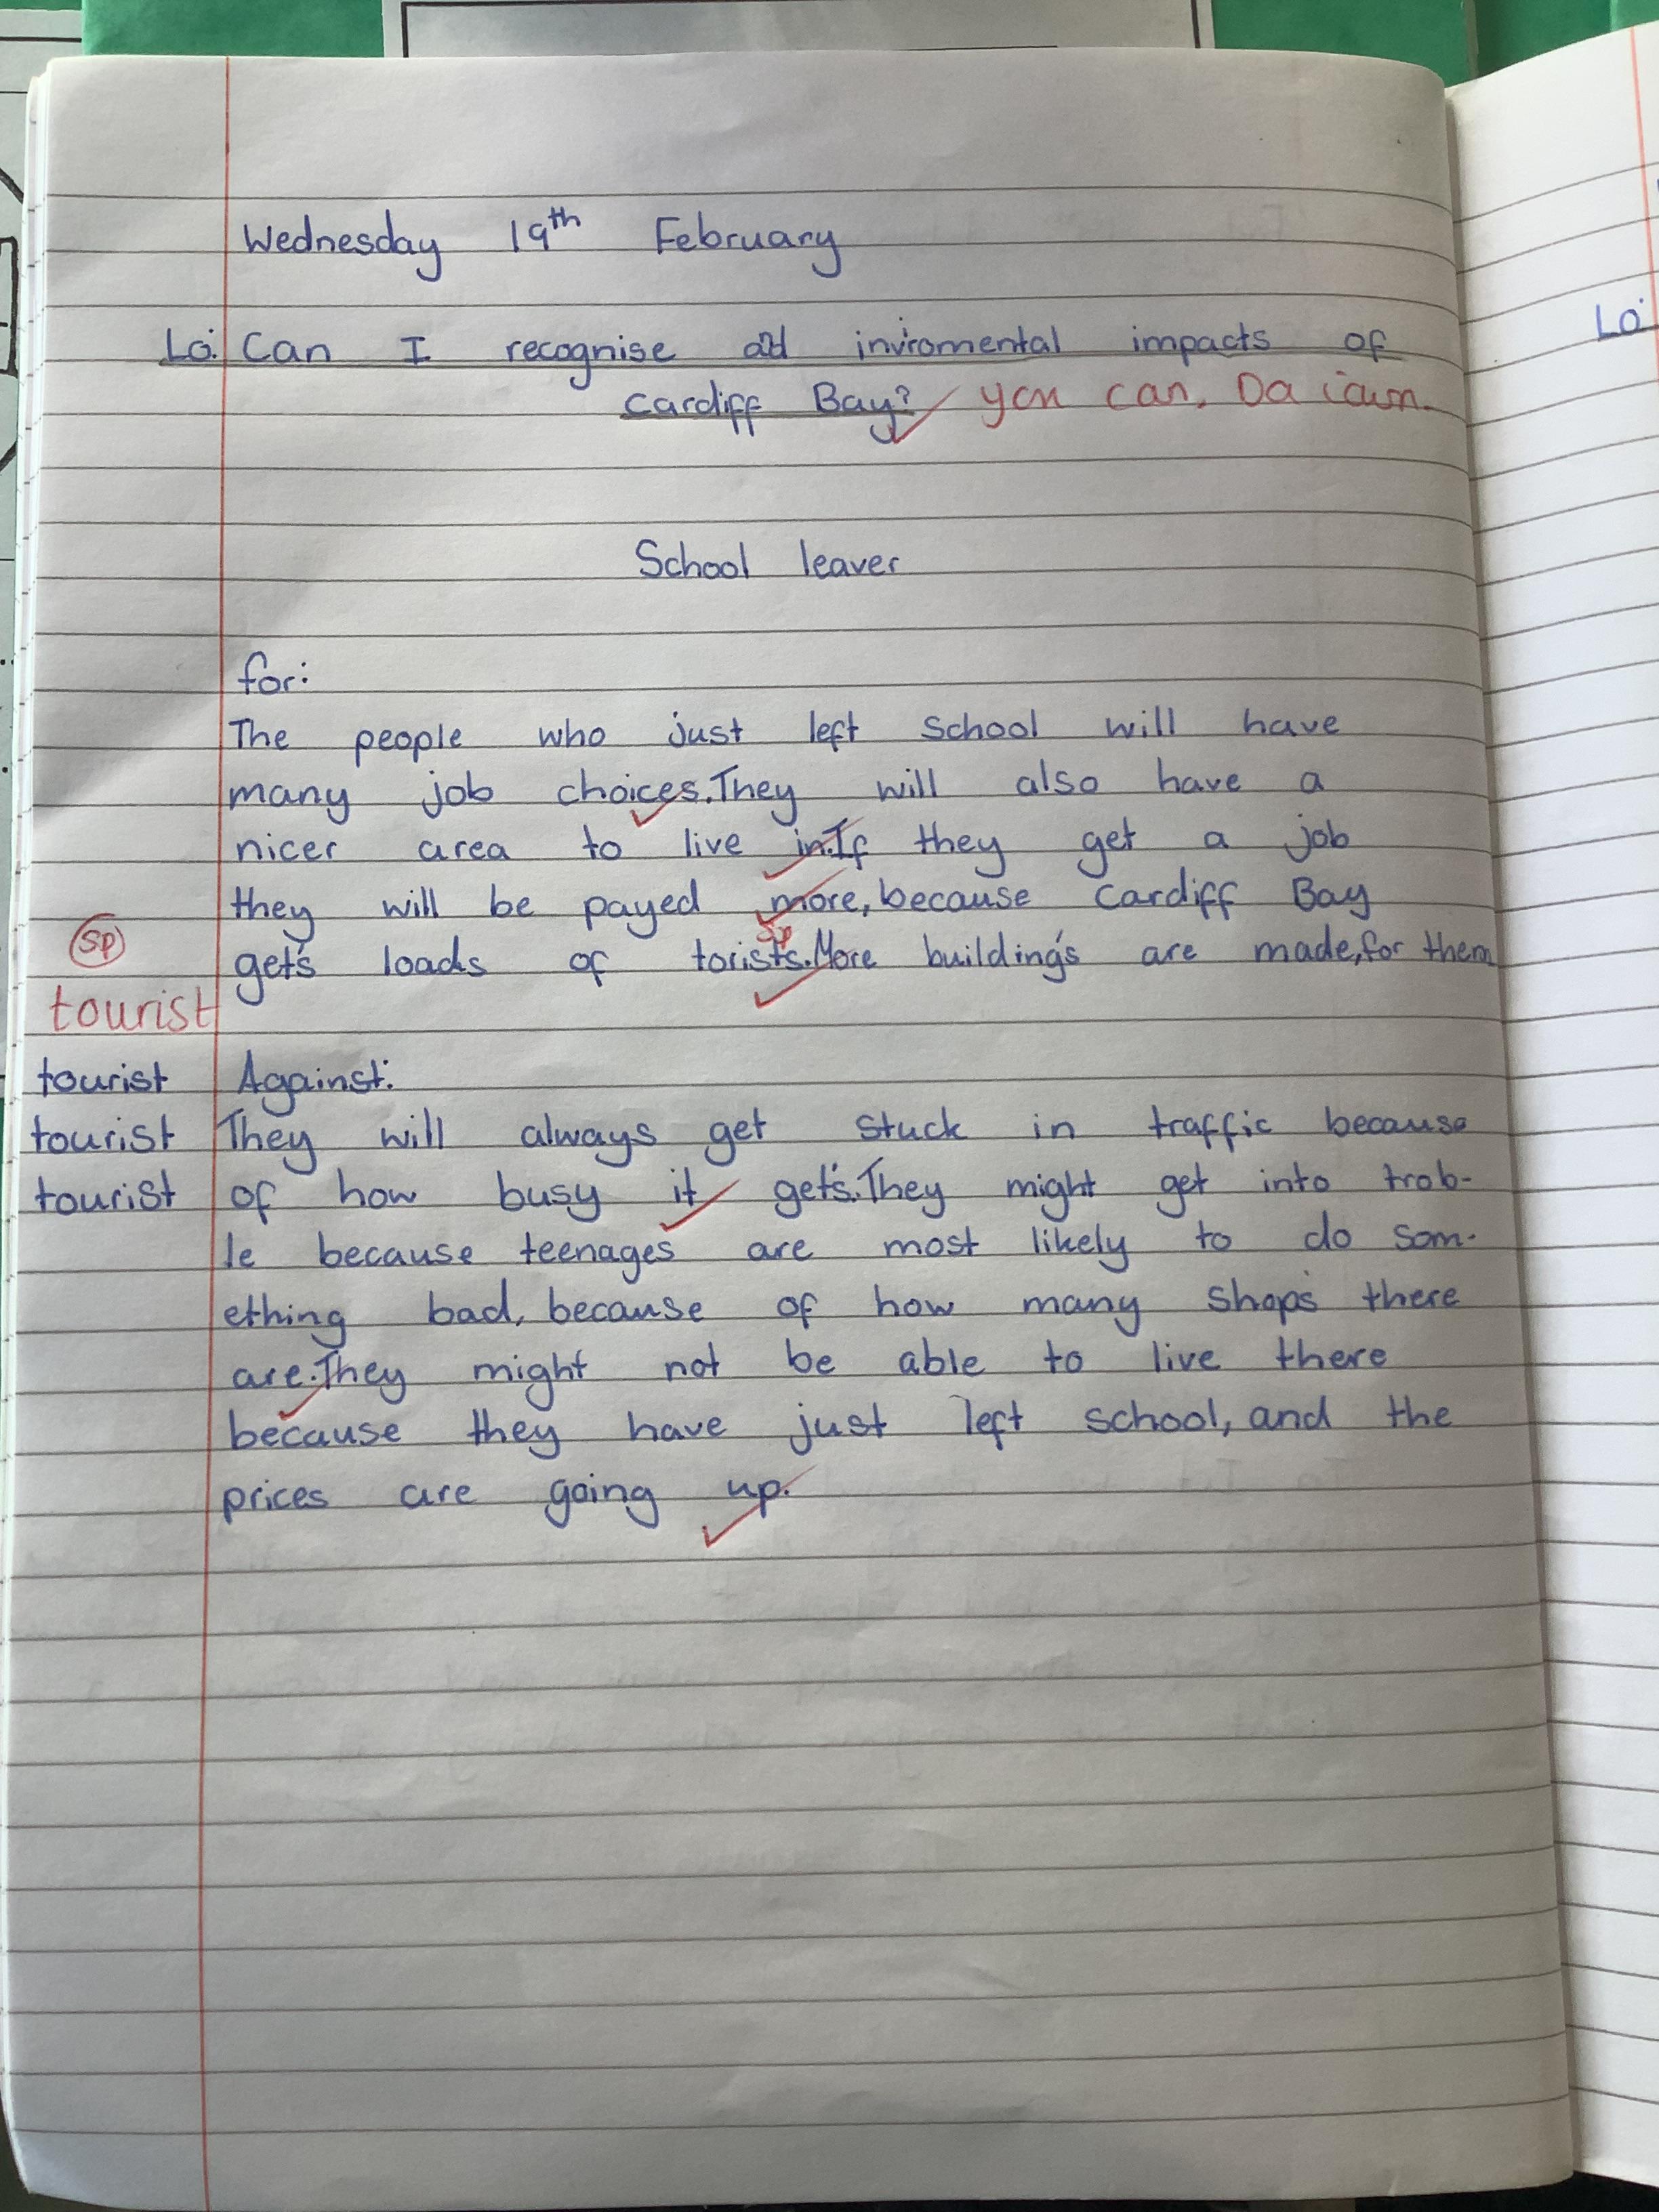 Wednesday 19th February
Lo: Can I recognise add inviromental impacts of
Cardiff Bay? you can. Da iawn.
Lo:
School leaver
for:
The people who just left school will have
many job choices. They will also have a
nicer area to live in. If they get a job
they will be payed more, because Cardiff Bay
sp
sp
get's loads of torist's. More building's are made, for them
tourist
tourist Against:
tourist They will always get stuck in traffic because
tourist of how busy it get's. They might get into trob-
le because teenages are most likely to do som-
ething bad, because of how many shops there
are. They might not be able to live there
because they have just left school, and the
prices are going up.